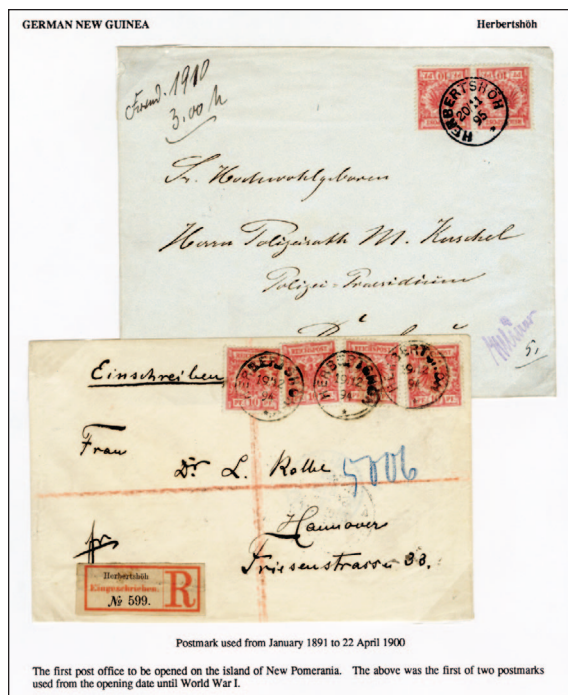 GERMAN NEW GUINEA
Herbertshöh
Freund. 1910
3.00 h
HERBERTSHÖH
20/11
95
*
Sr. Hochwohlgeboren
Herrn Polizeirath M. Kuschel
Polizei-Praesidium
5,
Einschreiben
HERBERTSHÖH
19/12
94
HERBERTSHÖH
19/12
94
HERBERTSHÖH
19/12
94
Frau
Dr. L. Rolle
5006
Hannover
Friesenstrasse 33.
fr
Herbertshöh
Eingeschrieben.
№ 599.
R
Postmark used from January 1891 to 22 April 1900
The first post office to be opened on the island of New Pomerania. The above was the first of two postmarks
used from the opening date until World War I.